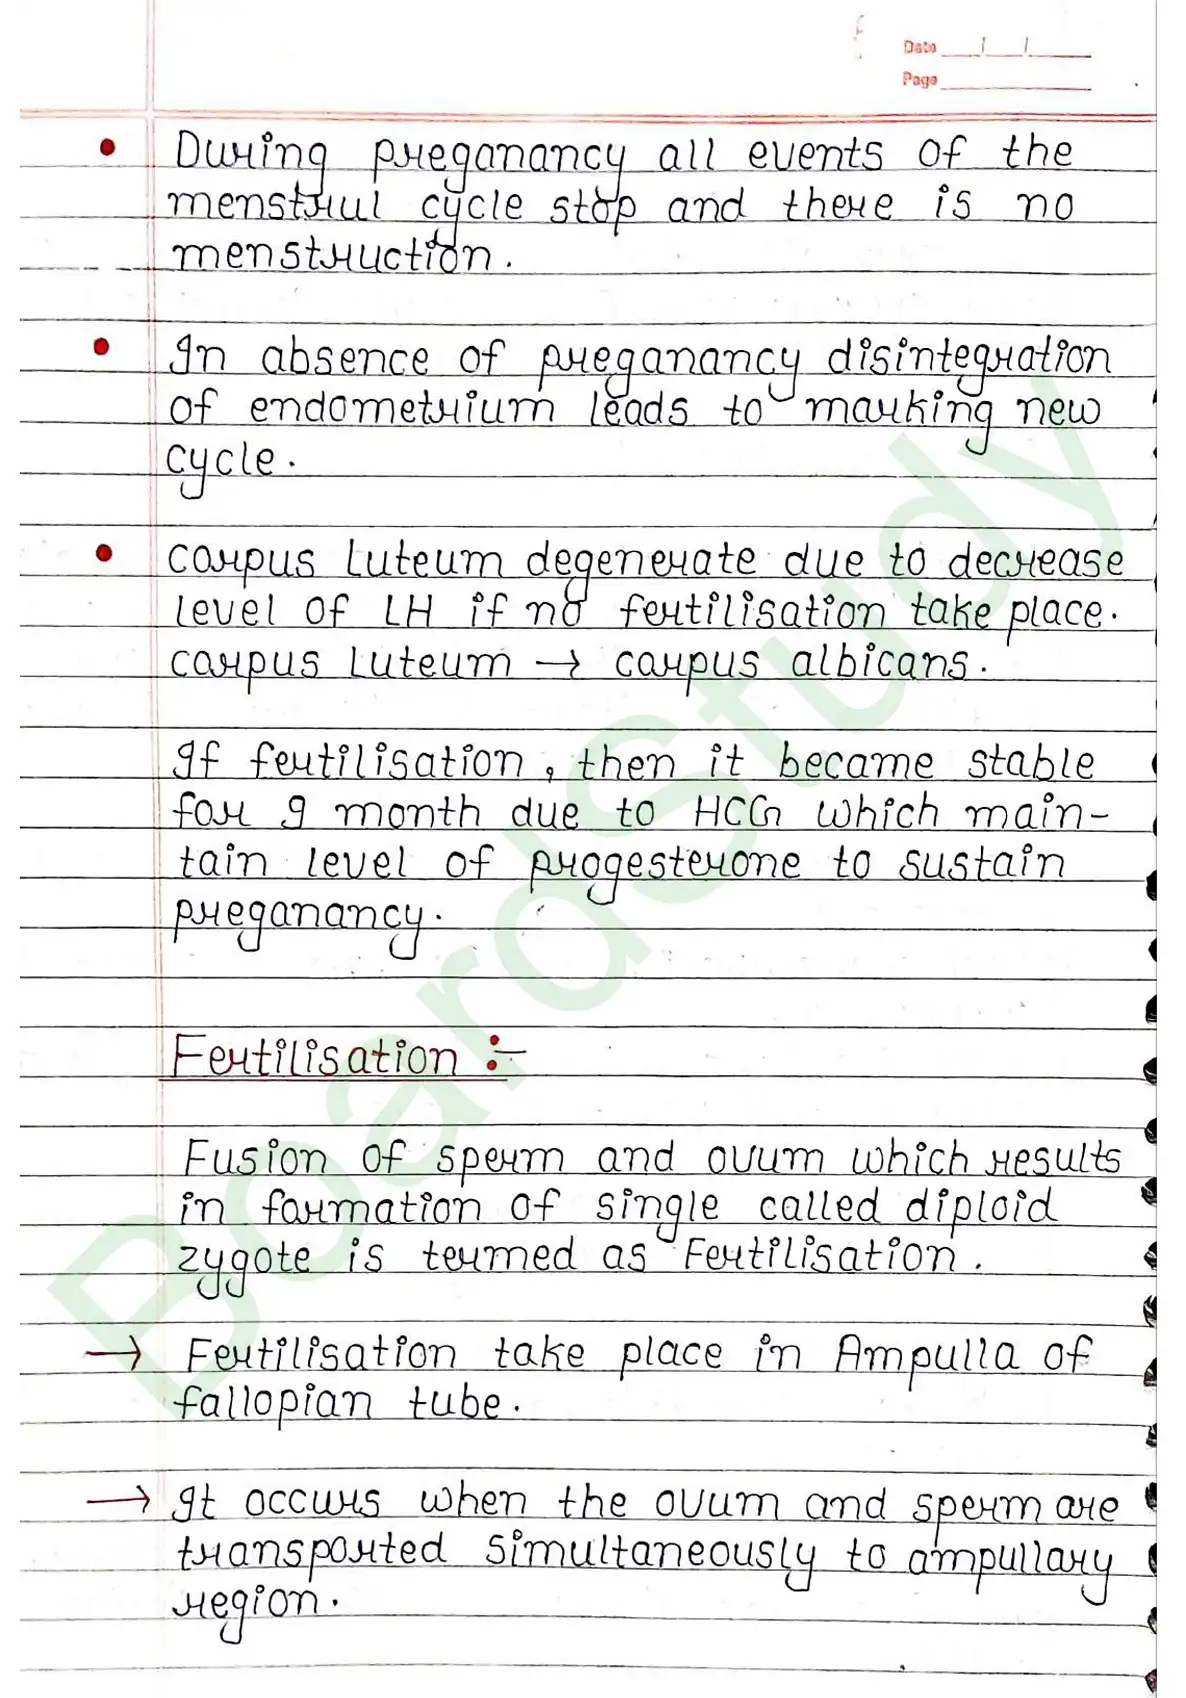 Date / /
Page
• During preganancy all events of the
menstrul cycle stop and there is no
menstruction.
• In absence of preganancy disintegration
of endometrium leads to marking new
cycle.
• corpus luteum degenerate due to decrease
level of LH if no fertilisation take place.
corpus luteum → corpus albicans.
If fertilisation, then it became stable
for 9 month due to HCG which main-
tain level of progesterone to sustain
preganancy.
Fertilisation :-
Fusion of sperm and ovum which results
in formation of single called diploid
zygote is termed as Fertilisation.
→ Fertilisation take place in Ampulla of
fallopian tube.
→ It occurs when the ovum and sperm are
transported simultaneously to ampullary
region.
BoardStudy